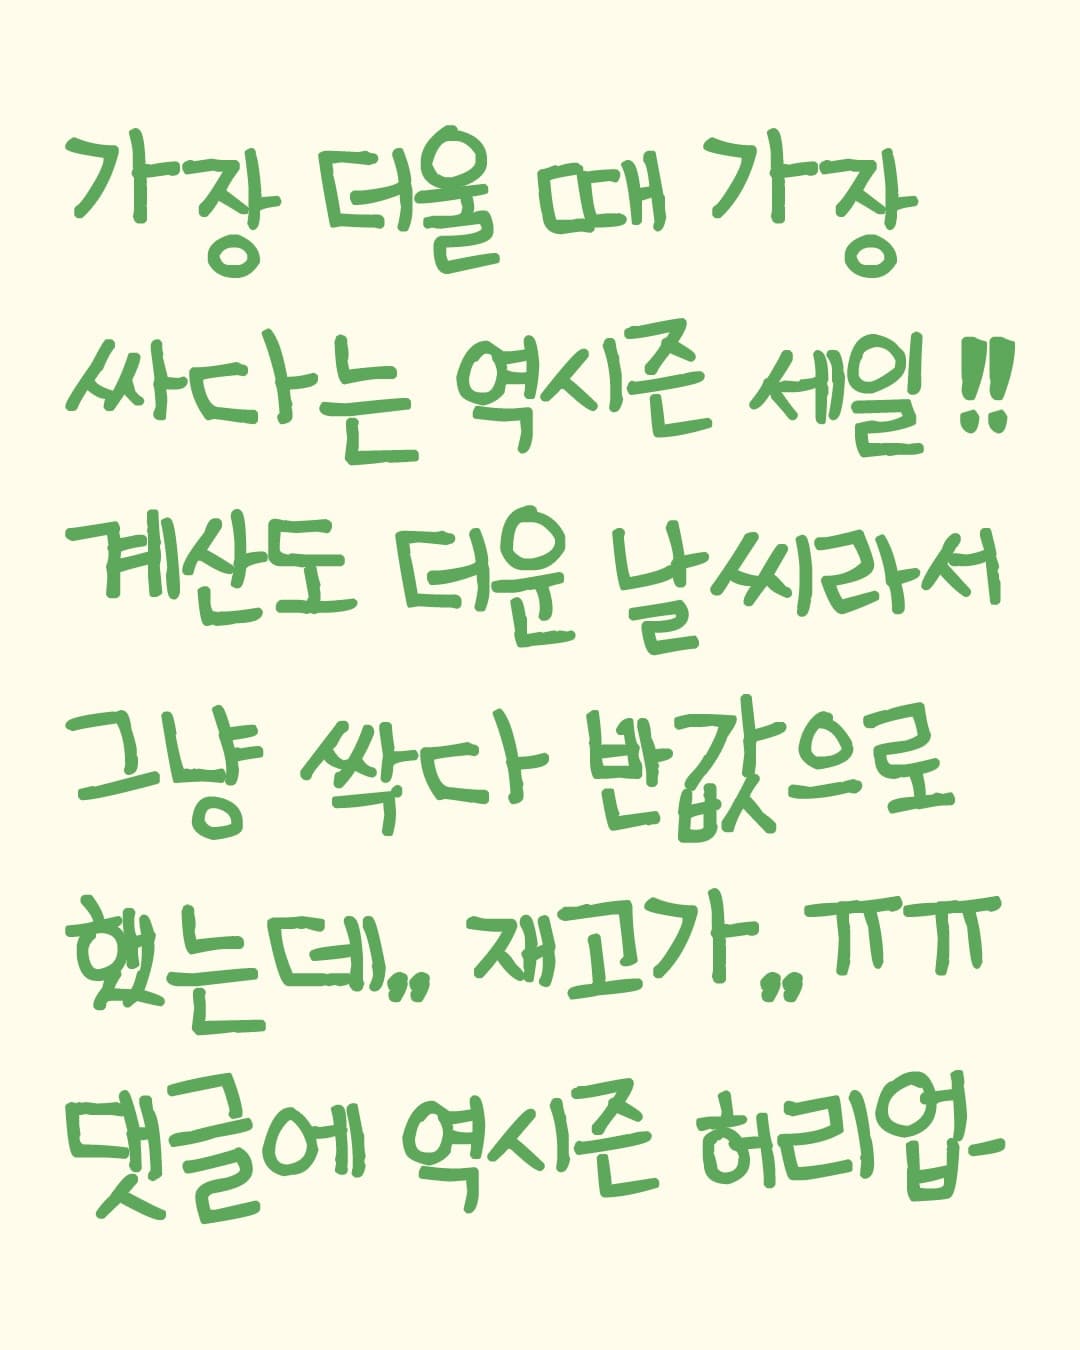 가장 더울 때 가장
싸다는 역시즌 세일!!
계산도 더운 날씨라서
그냥 싹다 반값으로
했는데,, 재고가,,ㅠㅠ
댓글에 역시즌 허리업-